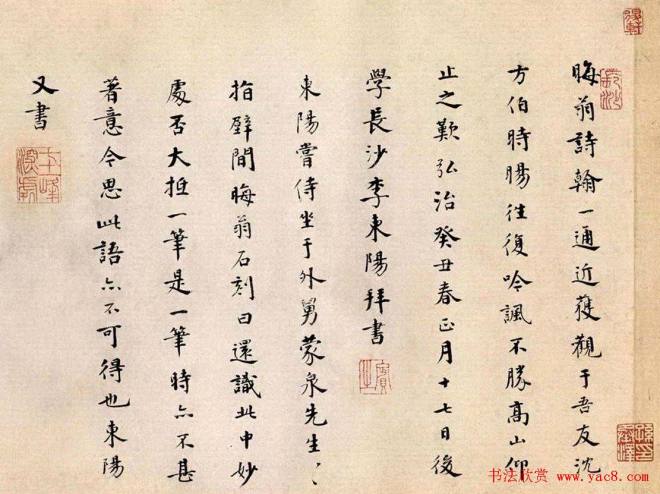 晦翁詩翰一通近獲觀于吾友沈
方伯時暘往復吟諷不勝高山仰
止之歎弘治癸丑春正月十七日後
學長沙李東陽拜書
東陽嘗侍坐于外舅蒙泉先生〻
指壁間晦翁石刻曰還識此中妙
處否大抵一筆是一筆時亦不甚
著意今思此語亦不可得也東陽
又書
书法欣赏 www.yac8.com